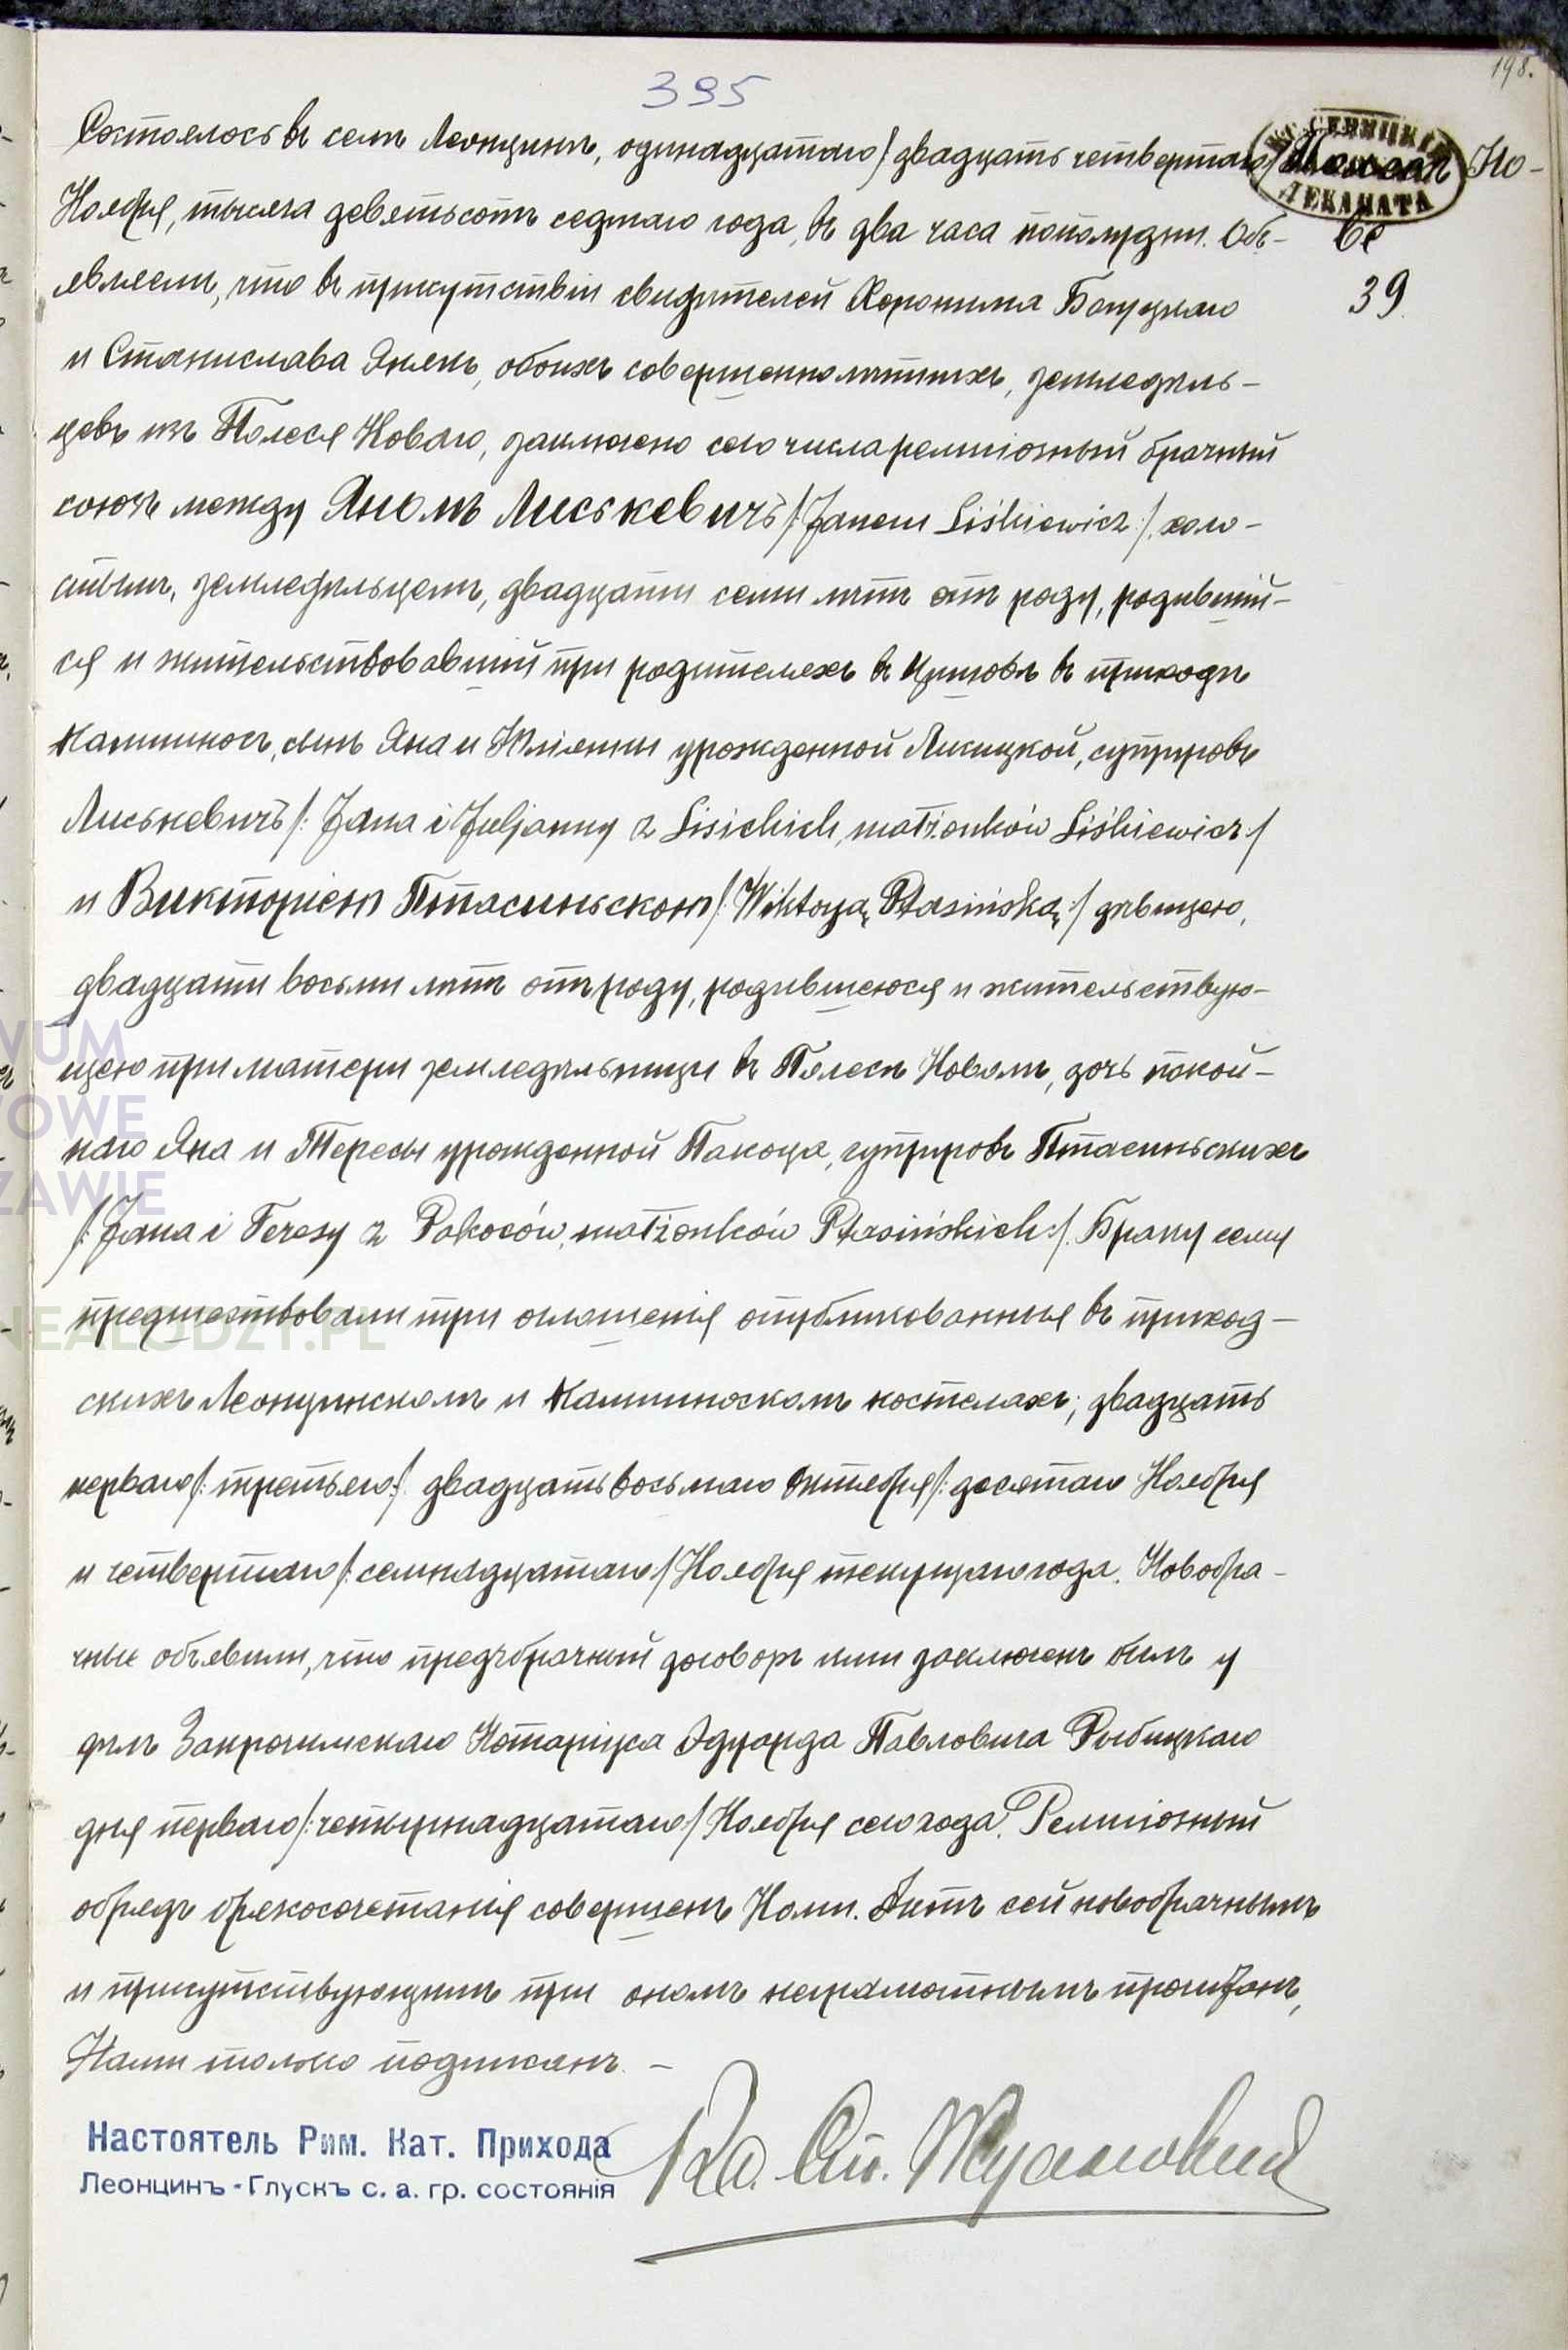 198.
395
Состоялось въ селѣ Леонцинѣ, одинадцатаго / двадцать четвертаго /
Полеся Но-
вe
39.
ДЕКАНАТА
Ноября, тысяча девятьсотъ седмаго года, въ два часа пополудни. Объ-
являемъ, что въ присутствіи свидѣтелей Херонима
и Станислава Янякъ, обоихъ совершеннолѣтнихъ, земледѣль-
цевъ изъ Полеся Новаго, заключено сего числа религіозный брачный
союзъ между Яномъ Лиськевичъ /: Janem Liśkiewicz :/, холо-
стымъ, земледѣльцемъ, двадцати семи лѣтъ отъ роду, родившій-
ся и жительствовавшій при родителяхъ въ въ приходѣ
Кампиносъ, сынъ Яна и Юліянны урожденной Лисицкой, супруговъ
Лиськевичъ /: Jana i Juljanny z Lisickich, małżonków Liśkiewicz :/
и Викторіею Птасиньскою /: Wiktoryą Ptasińską :/ дѣвицею,
двадцати восьми лѣтъ отъ роду, родившеюся и жительствую-
щею при матери земледѣльницы въ Полесѣ Новомъ, дочь покой-
наго Яна и Тересы урожденной Пакоца, супруговъ Птасиньскихъ
/: Jana i Teresy z Pakoców, małżonków Ptasińskich :/. Браку сему
предшествовали три оглашенія опубликованныя въ приход-
скихъ Леонцинскомъ и Кампиноскомъ костелахъ; двадцать
перваго /: третьяго :/ двадцать восьмаго Октября /: десятаго Ноября
и четвертаго /: семнадцатаго / Ноября текущаго года. Новобра-
чные объявили, что предъбрачный договоръ ими заключенъ былъ у
дѣлъ Закрочимскаго Нотаріуса Эдуарда Павловича Рыбицкаго
дня перваго /: четырнадцатаго / Ноября сего года. Религіозный
обрядъ бракосочетанія совершенъ Нами. Актъ сей новобрачнымъ
и присутствующимъ при ономъ неграмотнымъ прочитанъ,
Нами только подписанъ. –
Настоятель Рим. Кат. Прихода
Леонцинъ-Глускъ с. а. гр. состоянія